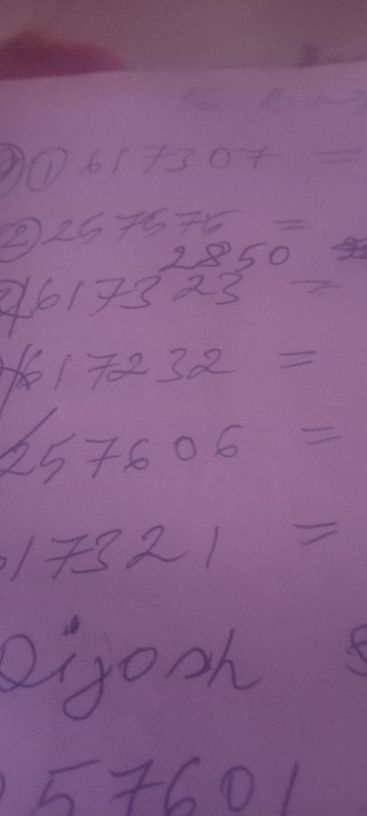 ① 617307 =
② 257575 =
2850
617323 =
617232 =
257606 =
617321 =
57601